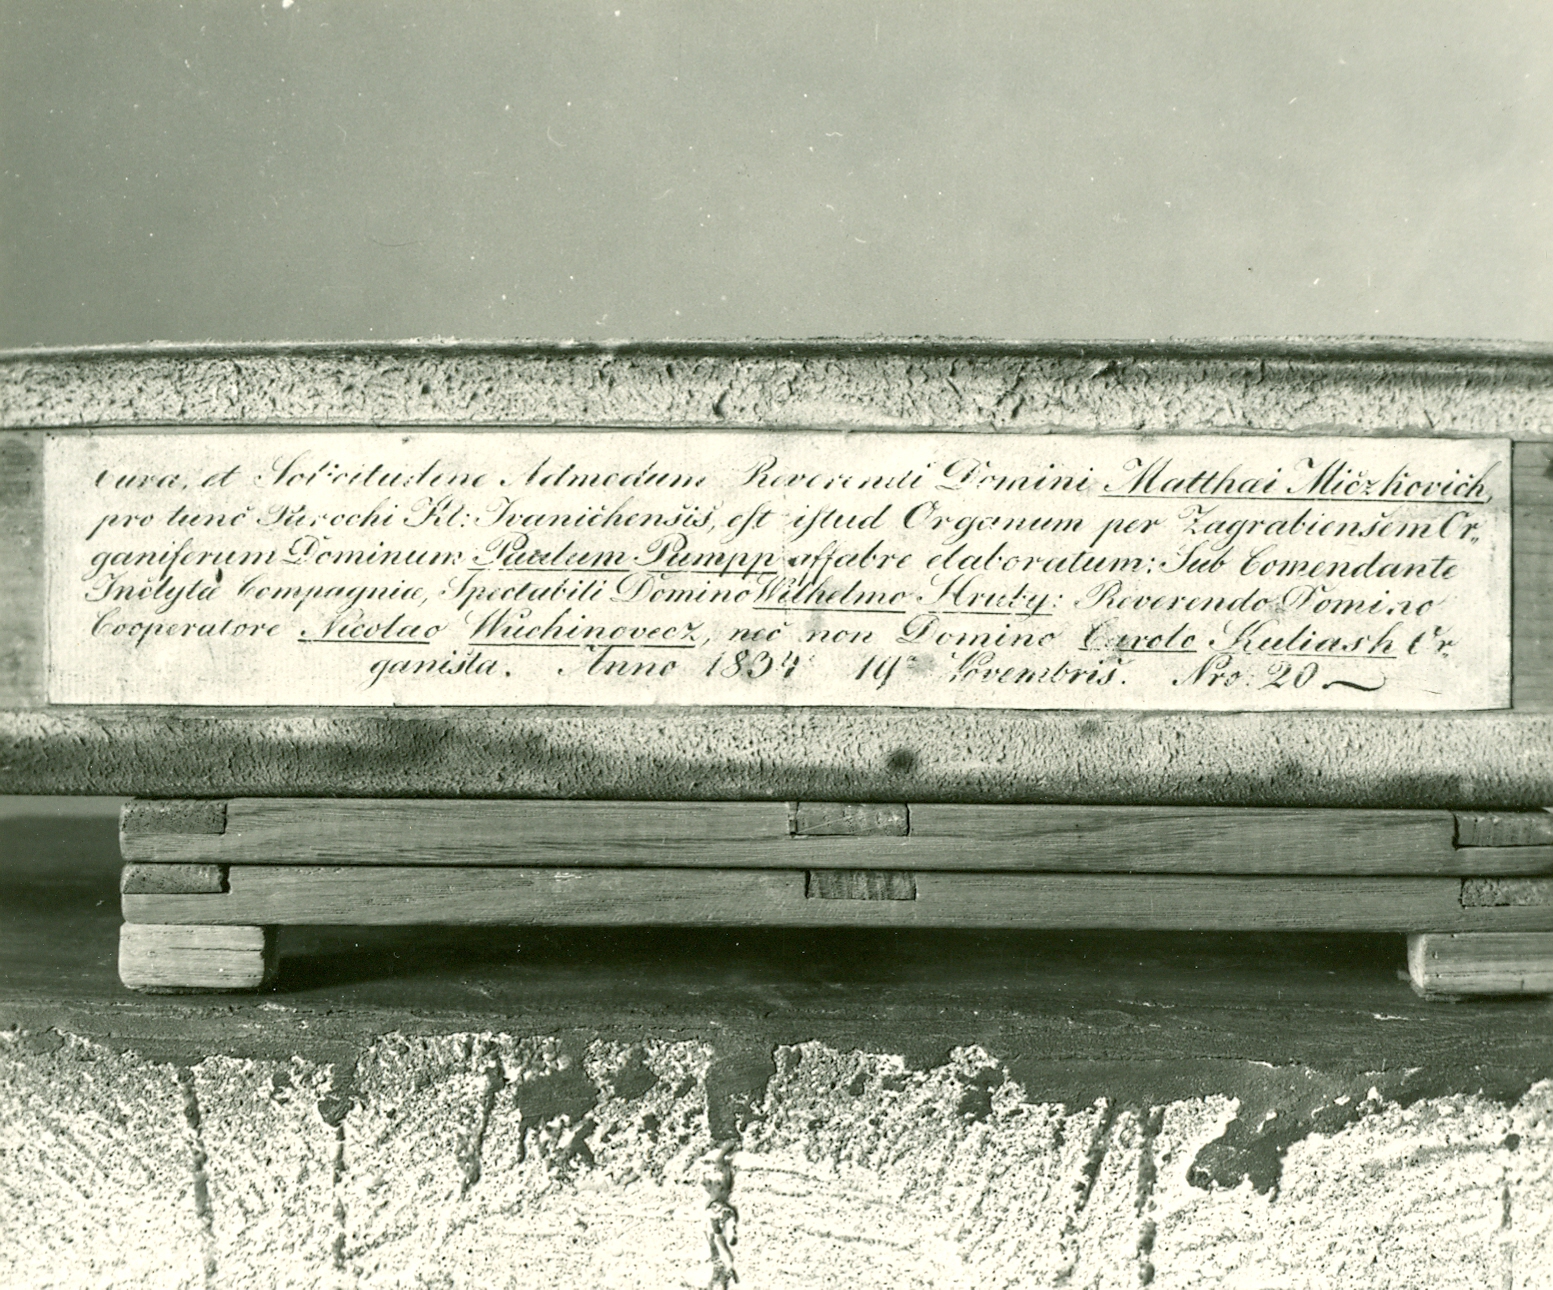 Cura, et Sollicitudine Admodum Reverendi Domini Matthai Miczkovich,
pro tunc Parochi Kl: Ivanichensis, est istud Organum per Zagrabiensem Or„
ganiferum Dominum Paulum Pumpp affabre elaboratum: Sub Comendante
Inclytà Compagniæ, Spectabili Domino Wilhelmo Hruby: Reverendo Domino
Cooperatore Nicolao Wuchinovecz, nec non Domino Carolo Kuliash Or„
ganista. Anno 1834 19 Novembris. Nro: 20